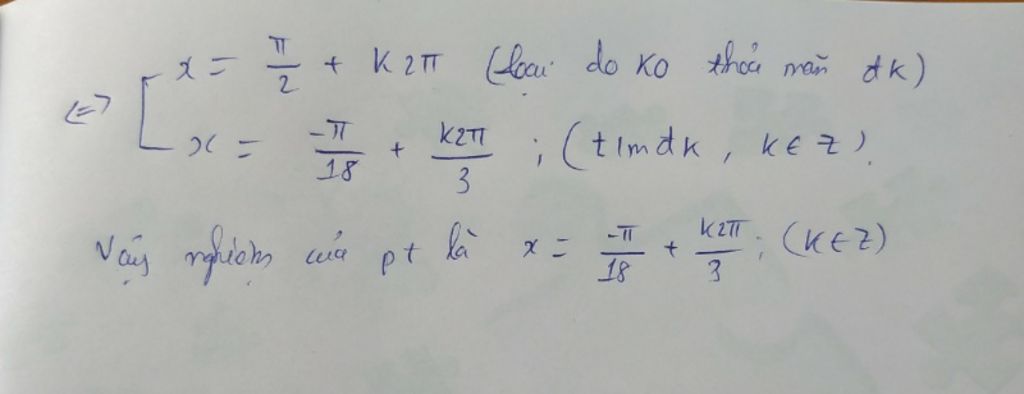 <=> [ x = π/2 + k2π (loại do ko thoả mãn đk)
x = -π/18 + k2π/3 ; (t/m đk, k ∈ Z).
Vậy nghiệm của pt là x = -π/18 + k2π/3 ; (k ∈ Z)